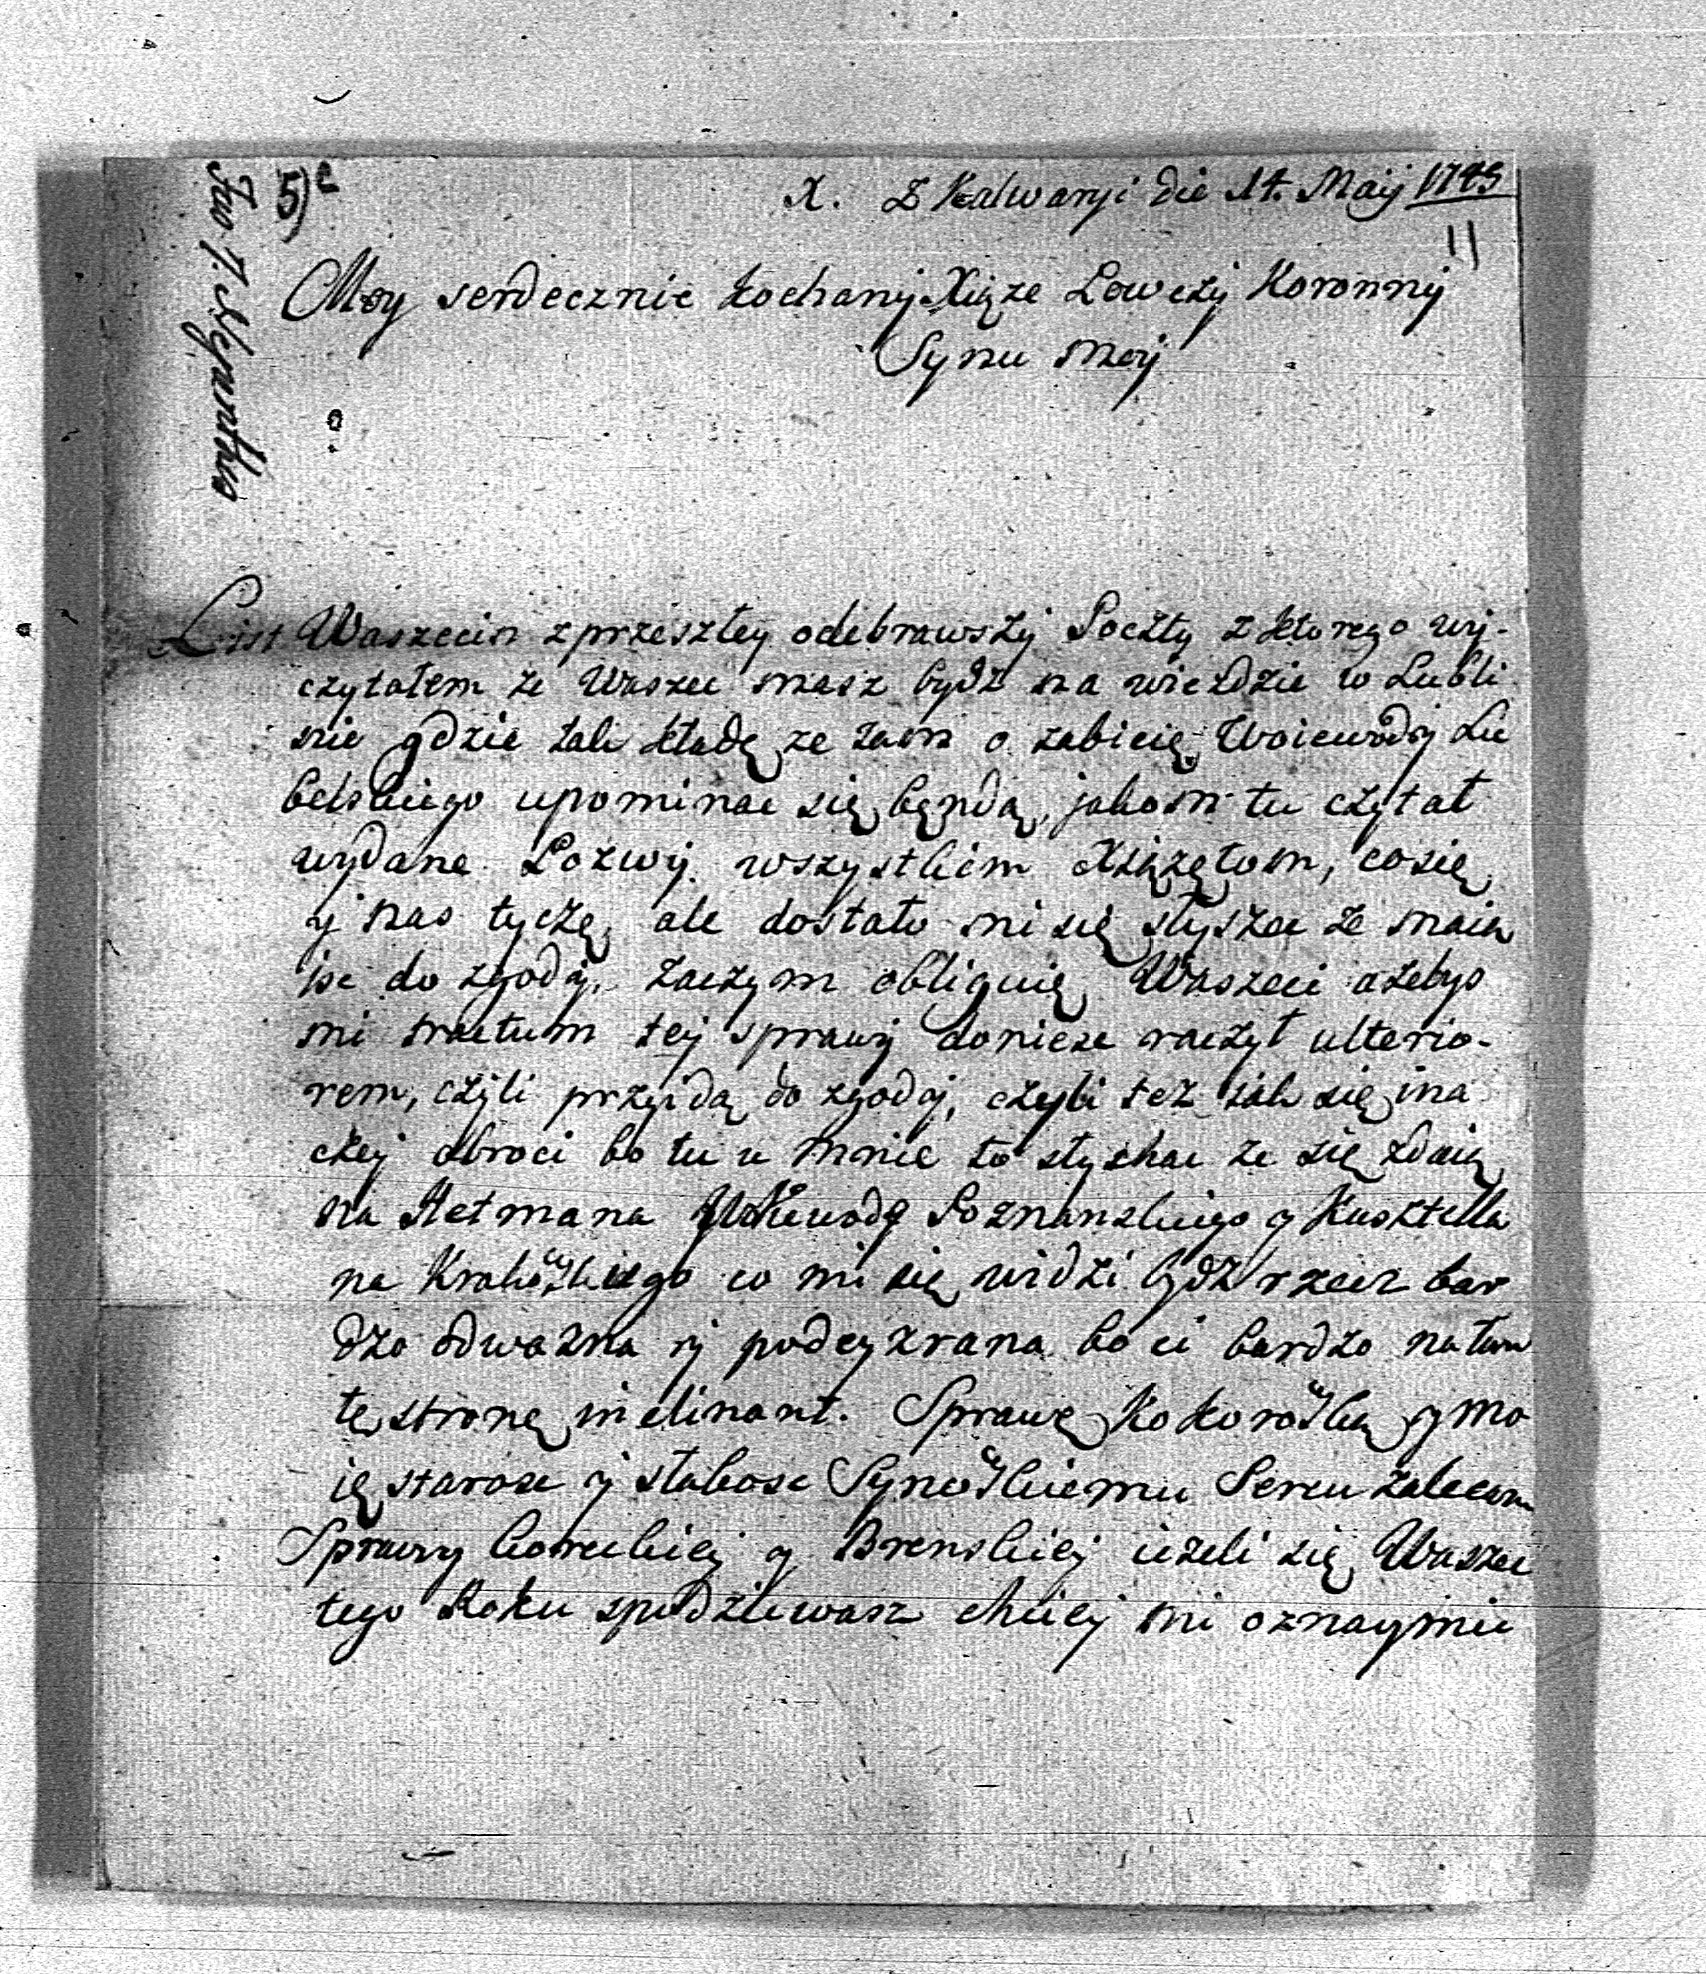 5)c
X. Z Kalwaryi die 14. Maij 1745
11
Moy serdecznie kochany Xiąze Łowczy Koronny
Synu moy
List Waszecin z przeszłey odebrawszy Poczty z ktorego wy-
czytałem ze Waszec masz bydz na wiezdzie w Lubli
nie gdzie tak kładę ze tam o zabicię Woiewody Lu
belskiego upominac się będą, jakom tu czytał
wydane Pozwy wszystkiem Xsiązętom, co się
y nas tyczę, ale dostało mi się słyszec ze maią
isc do zgody, zaczym obliguię Waszeci azebys
mi tractum tey sprawy doniesc raczył ulterio-
rem, czyli przyidą do zgody, czyli tez iak się ina
czey obroci bo tu u mnie to słychac ze się zdaią
na Hetmana Woiewodę Poznanskiego y Kasztella
na Krakowskiego co mi się widzi bydz rzecz bar
dzo odwazna y podeyzrana bo ci bardzo na tam
tę stronę inclinant. Sprawę Kokorowską y mo
ię starosc y słabosc Synowskiemu Sercu zalecam
Sprawy Goreckiey y Brenskiey iezeli się Waszec
tego Roku spodziewasz chciey mi oznaymic